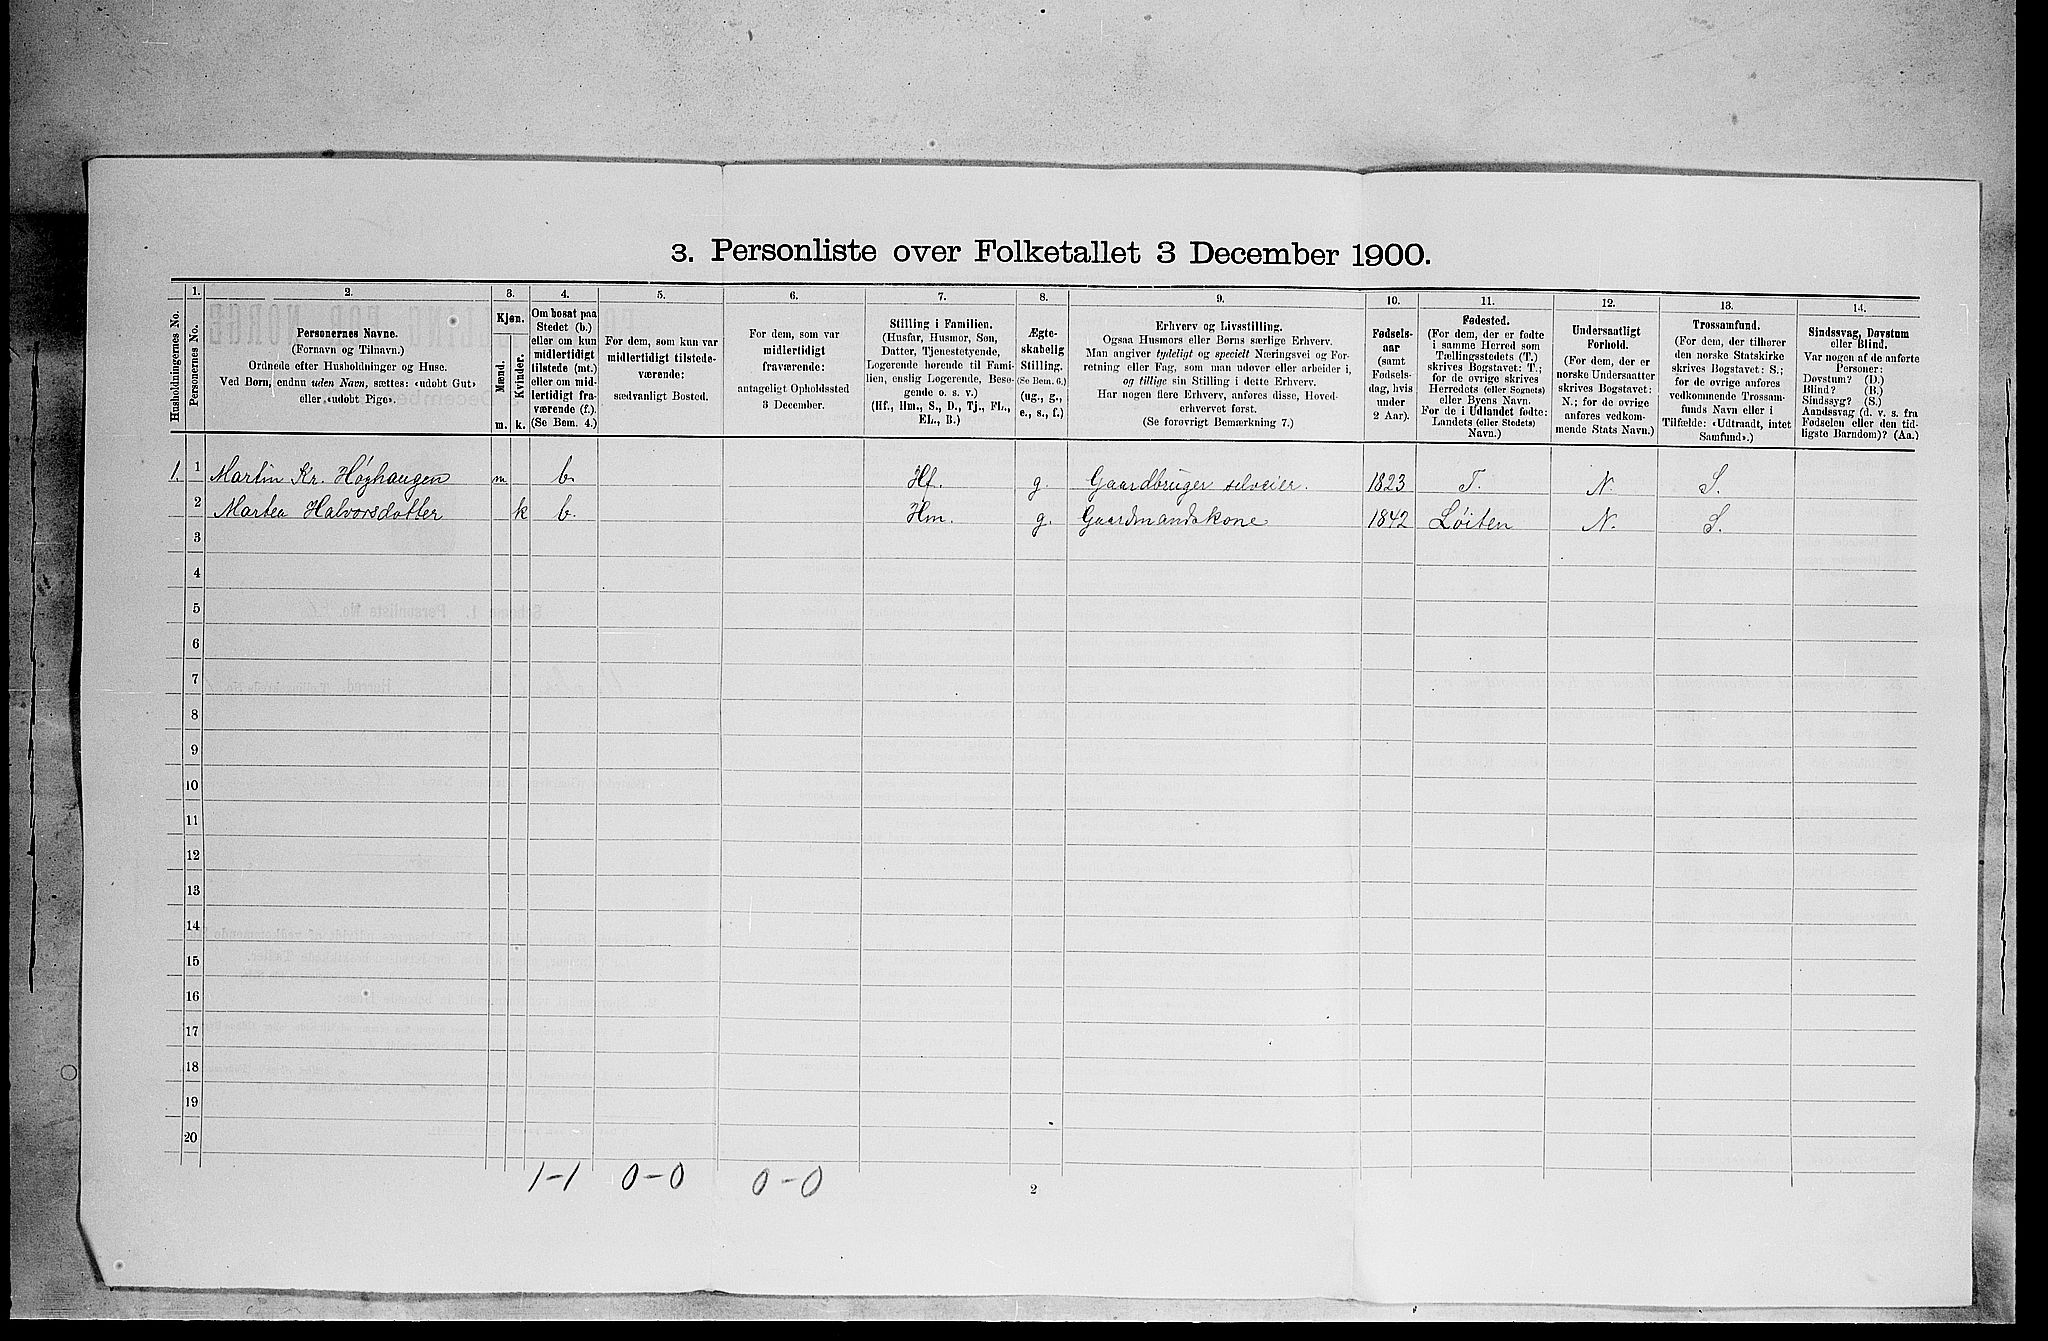 3. Personliste over Folketallet 3 December 1900.
Husholdningernes No.
1.
Personernes No.
2.
Personernes Navne.
(Fornavn og Tilnavn.)
Ordnede efter Husholdninger og Huse.
Ved Børn, endnu uden Navn, sættes: «udøbt Gut»
eller «udøbt Pige».
3.
Kjøn.
Mænd.
Kvinder.
m.
k.
4.
Om bosat paa
Stedet (b.)
eller om kun
midlertidigt
tilstede (mt.)
eller om mid-
lertidigt fra-
værende (f.).
(Se Bem. 4.)
5.
For dem, som kun var
midlertidigt tilstede-
værende:
sædvanligt Bosted.
6.
For dem, som var
midlertidigt
fraværende:
antageligt Opholdssted
3 December.
7.
Stilling i Familien.
(Husfar, Husmor, Søn,
Datter, Tjenestetyende,
Logerende hørende til Fami-
lien, enslig Logerende, Besø-
gende o. s. v.)
(Hf., Hm., S., D., Tj., FL.,
EL., B.)
8.
Ægte-
skabelig
Stilling.
(Se Bem. 6.)
(ug., g.,
e., s., f.)
9.
Erhverv og Livsstilling.
Ogsaa Husmors eller Børns særlige Erhverv.
Man angiver tydeligt og specielt Næringsvei og For-
retning eller Fag, som man udøver eller arbeider i,
og tillige sin Stilling i dette Erhverv.
Har nogen flere Erhverv, anføres disse, Hoved-
erhvervet først.
(Se forøvrigt Bemærkning 7.)
10.
Fødsels-
aar
(samt
Fødsels-
dag, hvis
under
2 Aar).
11.
Fødested.
(For dem, der er fødte
i samme Herred som
Tællingsstedets (T.)
skrives Bogstavet: T.;
for de øvrige skrives
Herredets (eller Sognets)
eller Byens Navn.
For de i Udlandet fødte:
Landets (eller Stedets)
Navn.)
12.
Undersaatligt
Forhold.
(For dem, der er
norske Undersaatter
skrives Bogstavet:
N.; for de øvrige
anføres vedkom-
mende Stats Navn.)
13.
Trossamfund.
(For dem, der tilhører
den norske Statskirke
skrives Bogstavet: S.;
for de øvrige anføres
vedkommende Trossam-
funds Navn eller i
Tilfælde: «Udtraadt, intet
Samfund».)
14.
Sindssvag, Døvstum
eller Blind.
Var nogen af de anførte
Personer:
Døvstum? (D.)
Blind? (B.)
Sindssyg? (S.)
Aandssvag (d. v. s. fra
Fødselen eller den tid-
ligste Barndom)? (Aa.)
1. 1 Martin Kr. Høghaugen m. b. Hf. g. Gaardbruger selveier. 1823 T. N. S.
2 Martea Halvorsdatter k b. Hm. g. Gaardmandskone 1842 Løiten N. S.
3
4
5
6
7
8
9
10
11
12
13
14
15
16
17
18
19
20
1-1 0-0 0-0
2